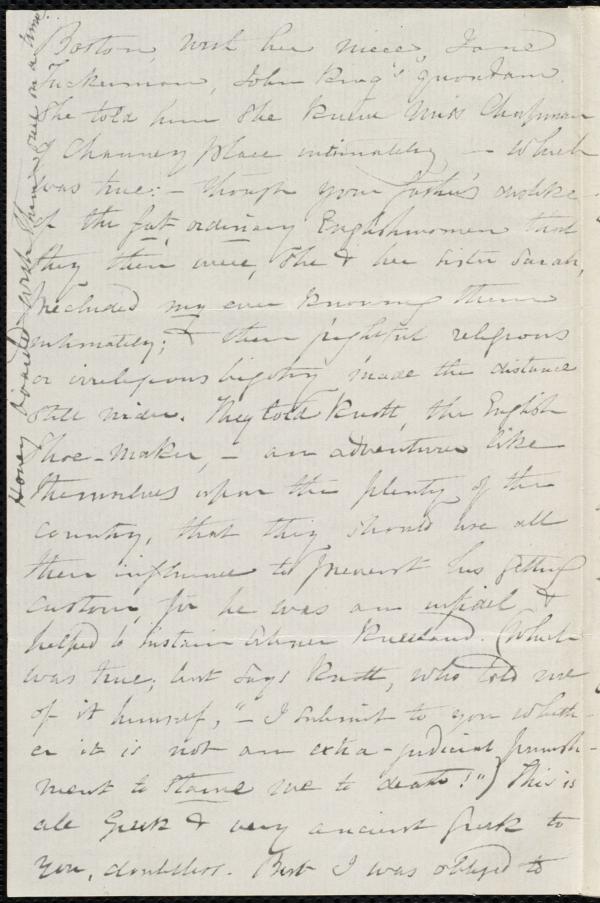 Boston, with her niece, Jane
Tuckerman, John King's quondam.
She told him she knew Miss Chapman
of Chauncy place intimately — which
was true: — though your father's dislike
of the fat, ordinary Englishwomen that
they then were, she & her sister Sarah,
precluded my ever knowing them
intimately; & their frightful religious
or irreligious bigotry made the distance
still wider. They told Knott, the English
Shoe-maker, — an adventurer like
themselves upon the plenty of the
country, that they should use all
their influence to prevent his getting
custom, for he was an infidel &
helped to sustain Abner Kneeland. (Which
was true; but says Knott, who told me
of it himself, "— I submit to you wheth-
er it is not an extra-judicial punish-
ment to starve me to death!") This is
all Greek & very ancient Greek to
you, doubtless. But I was obliged to
Honey boarded with them once on a time.